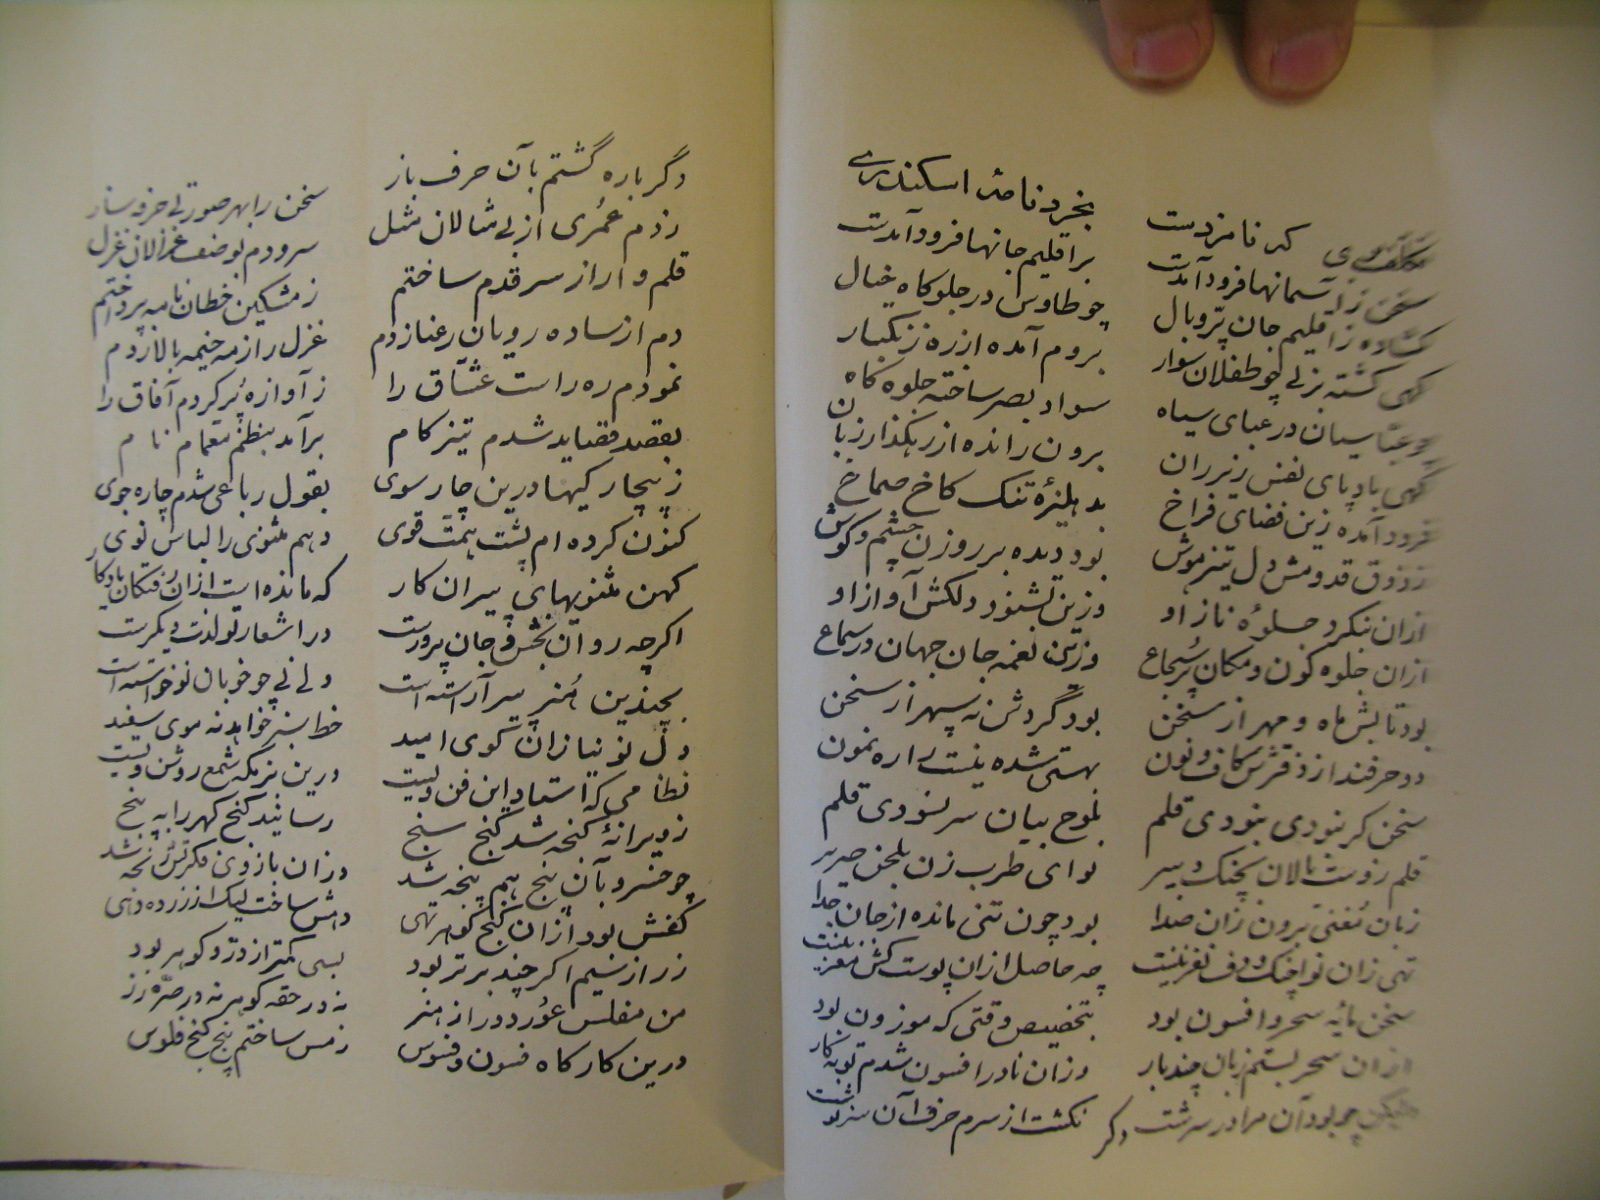 که نامزدست بخردنامهٔ اسکندری
سخن زآسمانها فرود آمدست براقلیم جانها فرود آمدست
گشاده زاقلیم جان پر و بال چو طاوس در جلوه‌کاه خیال
کهی کشته بر نی چو طفلان سوار بروم آمده از ره زنکبار
چو عباسیان در عبای سیاه سواد بصر ساخته جلوه کاه
کهی باد پای نفس زیر ران برون رانده از رهکذار زبان
فرود آمده زین فضای فراخ بدهلیزهٔ تنک کاخ صماخ
ز ذوق قدومش دل تیز هوش بود دیده بر روزن چشم و کوش
ازان بنکرد جلوهٔ ناز او وزین بشنود دلکش آواز او
ازان جلوه کون و مکان پر شعاع وزین نغمه جان جهان در سماع
بود تابش ماه و مهر از سخن بود گردش نه سپهر از سخن
دو حرفند از دفترش کاف و نون بهستی شده نیست را ره نمون
سخن کر نبودی نبودی قلم بلوح بیان سر نسودی قلم
قلم زوست نالان بچنک دبیر نوای طرب زن بلحن صریر
زبان مغنی برون زان صدا بود چون تنی مانده از جان جدا
تهی زان نوا چنک و دف نغز نیست چه حاصل ازان پوست کش مغز نیست
سخن مایهٔ سحر و افسون بود بتخصیص وقتی که موزون بود
ازان سحر بستم زبان چند بار وزان نادر افسون شدم توبه کار
ولیکن چو بود آن مرا در سرشت نکشت از سرم حرف آن سرنوشت
دکر
دگر باره گشتم بآن حرف باز سخن را بهر صورتی حرف ساز
زدم عمری از بی مثالان مثل سرودم بوصف غزالان غزل
قلم وار از سر قدم ساختم ز مشکین خطان نامه پرداختم
دم از ساده رویان رعنا زدم غزل را ز مه خیمه بالا زدم
نمودم ره راست عشاق را ز آوازه پر کردم آفاق را
بقصد قصاید شدم تیز کام برآمد بنظم معمام نام
ز بیچار کیها درین چار سوی بقول رباعی شدم چاره جوی
کنون کرده ام پشت همت قوی دهم مثنوی را لباس نوی
کهن مثنویهای پیران کار که مانده است ازان رفتکان یادکار
اکرچه روان بخش و جان پرورست در اشعار نو لذت دیکرست
بچندین هنر پیر آراسته است ولی نی چو خوبان نوخواسته است
دل نو نیازان کوی امید خط سبز خواهد نه موی سفید
نظامی که استاد این فن ویست درین بزمکه شمع روشن ویست
ز ویرانهٔ کنجه شد کنج سنج رسانید کنج کهر را به پنج
چو خسرو بآن پنج هم پنجه شد وزان بازوی فکرتش رنجه شد
کفش بود ازان کنج کوهر تهی دهش ساخت لیک از زر ده دهی
زر از سیم اکر چند برتر بود بسی کمتر از در و کوهر بود
من مفلس عور دور از هنر نه در حقه کوهر نه در صره زر
درین کارکاه فسون و فسوس ز مس ساختم پنج کنج فلوس